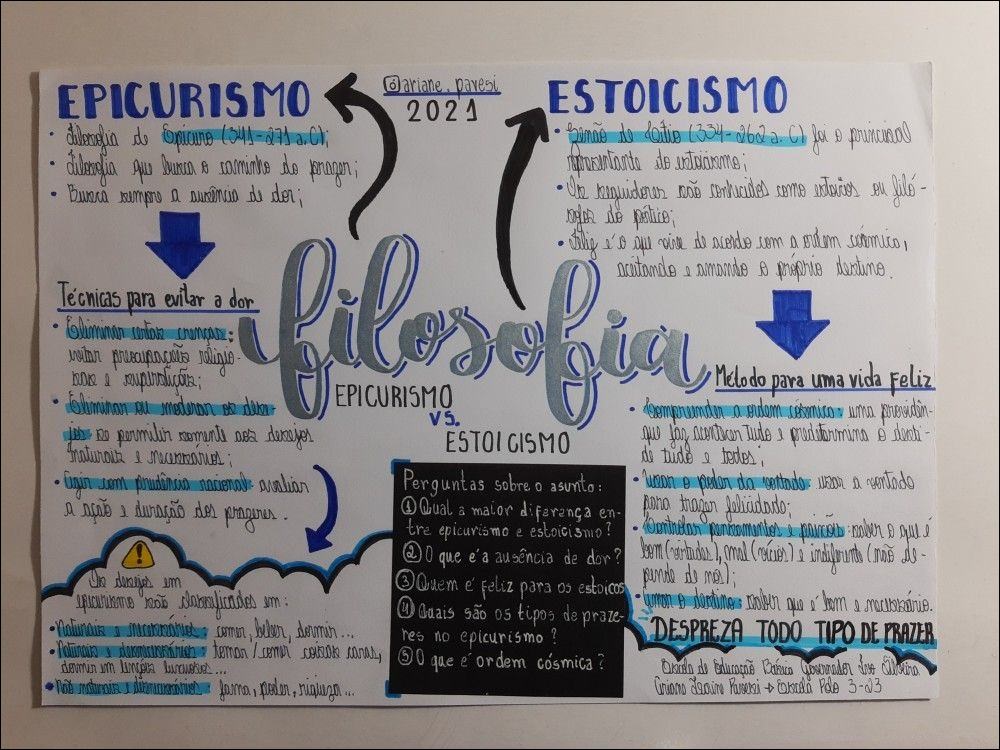 EPICURISMO
• Filosofia de Epicuro (341-271 a.C);
• Filosofia que busca o caminho do prazer;
• Busca sempre a ausência de dor;
Técnicas para evitar a dor
• Eliminar certas crenças:
evitar preocupações religio-
sas e superstições;
• Eliminar ou moderar os dese-
jos: se permitir somente aos desejos
naturais e necessários;
• Agir com prudência racional: avaliar
a ação e duração dos prazeres.
Os desejos em
epicurismo são classificados em:
• Naturais e necessários: comer, beber, dormir...
• Naturais e desnecessários: tomar/comer coisas caras,
dormir em lençóis luxuosos...
• Não naturais e desnecessários: fama, poder, riqueza...
ariane.pavesi
2021
filosofia
EPICURISMO
VS.
ESTOICISMO
Perguntas sobre o assunto:
① Qual a maior diferença en-
tre epicurismo e estoicismo?
② O que é a ausência de dor?
③ Quem é feliz para os estoicos
④ Quais são os tipos de praze-
res no epicurismo?
⑤ O que é ordem cósmica?
ESTOICISMO
• Zenão de Cítio (334-262 a.C) foi o principal
representante do estoicismo;
• Os seguidores são conhecidos como estoicos ou filó-
sofos do pórtico;
• Feliz é o que vive de acordo com a ordem cósmica,
aceitando e amando o próprio destino.
Método para uma vida feliz
• Compreender a ordem cósmica: uma providên-
que faz acontecer tudo e predetermina o desti-
de tudo e todos;
• Usar o poder da vontade: usar a vontade
para trazer felicidade;
• Controlar pensamentos e paixões: saber o que é
bom (virtudes), mal (vícios) e indiferente (não de-
pende de nós);
• Amar o destino: saber que é bom e necessário.
DESPREZA TODO TIPO DE PRAZER
Escola de Educação Básica Governador Silveira
Ariane Pavesi → Escola Polo 3-23